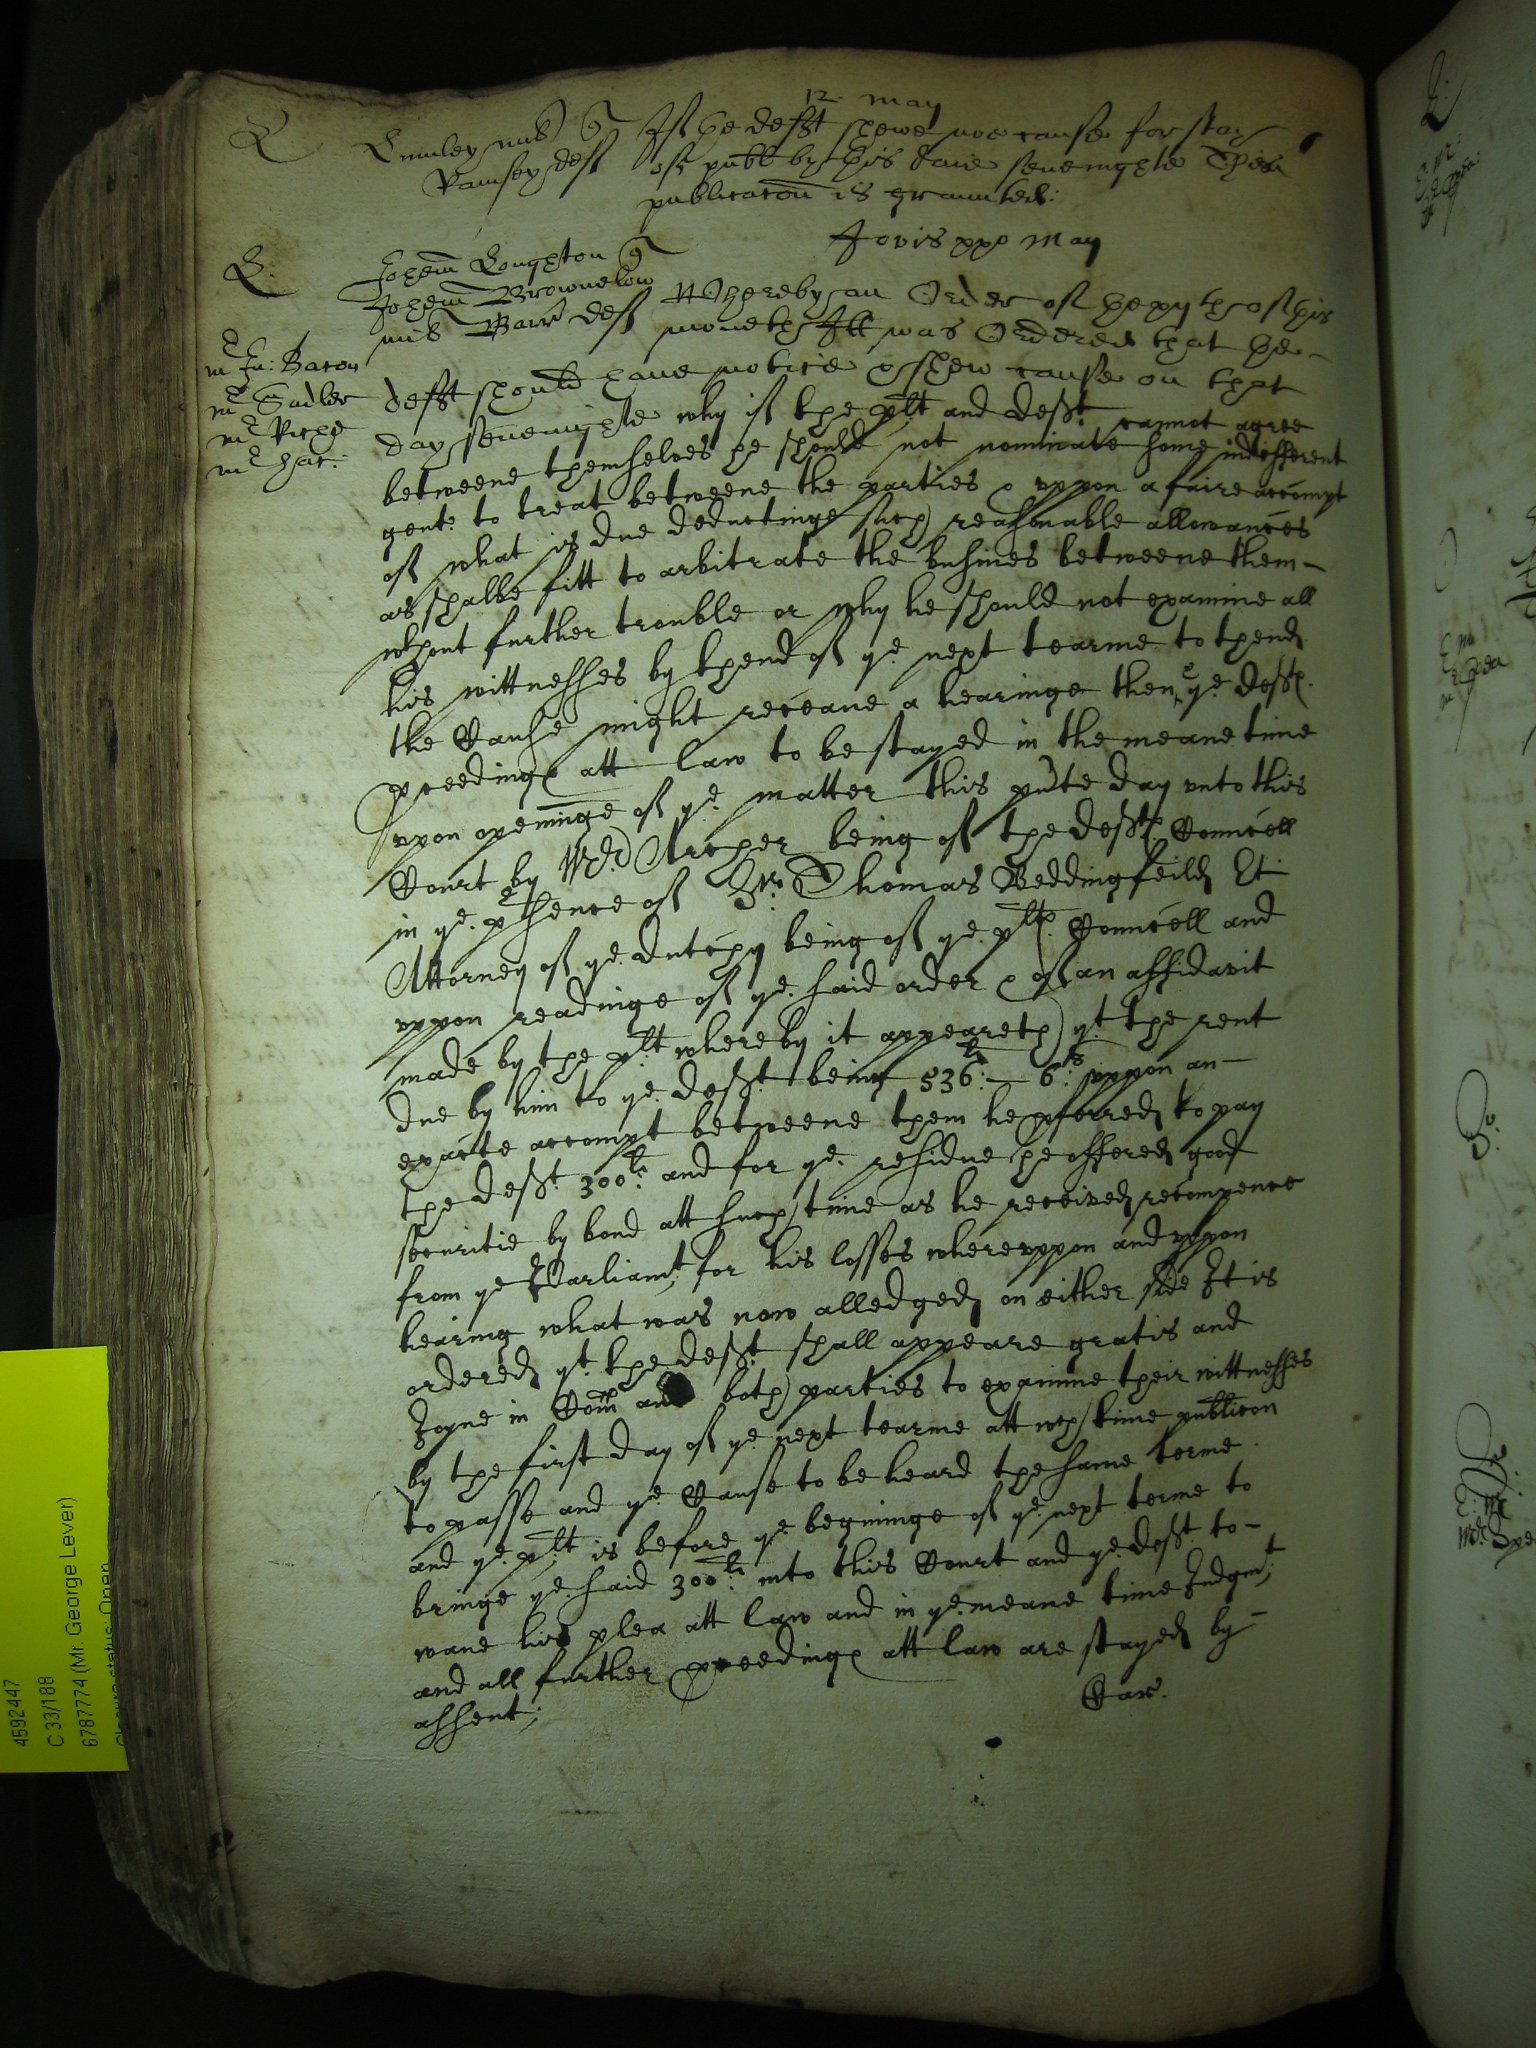 12 May
L Emley mil q If the deft shewe noe cause for stay
Ramsey deft of publ by this daie sevenighte Then
publicacon is graunted:
Jovis xxo May
L. Johem Loughton q
Johem Brownelow
mil Barr deft Whereby an Order of the xyth of this
moneth Itt was Ordered that the
mr Fr: Bacon
mr Sadler
mr Riche
mr Jac:
deft should have notice & shew cause on that
day sevenighte why if the plt and deft cannot agree
betweene themselves he should not nominate some indifferent
gent: to treat betweene the parties & vppon a faire accompt
of what is due deductinge such reasonable allowances
as shalbe fitt to arbitrate the busines betweene them
wthout further trouble or why he should not examine all
his wittnesses by thend of ye next tearme to thend
the Cause might receave a hearinge then ye defts
pceedings att law to be stayed in the meane time
vpon openinge of ye matter this pnte day vnto this
Court by Mr Archer being of the defts Councell
in ye psence of Sr Thomas Beddingfeild Kt
Attorney of ye dutchy being of ye plts Councell and
vppon readinge of ye said order & of an affidavit
made by the plt whereby it appeareth yt the rent
due by him to ye deft being 536li – 6s vppon an
exacte accompt betweene them he pferred to pay
the deft 300li and for ye residue he offered good
securitie by bond att such time as he received recompence
from ye Parliamt for his losses wherevppon and vppon
hearing what was now alledged on either side It is
ordered yt the deft shall appeare gratis and
Joyne in Com and both parties to examine their wittnesses
by the first day of ye next tearme att wch time publicon
to passe and ye Cause to be heard the same terme
and ye plt is before ye begininge of ye next terme to
bringe ye said 300li into this Court and ye deft to
wave his plea att law and in ye meane time Judgmt
and all further pceedings att law are stayed by
assent;
Car.
4592447
C 33/188
6787774 (Mr. George Lever)
Closure status: Open